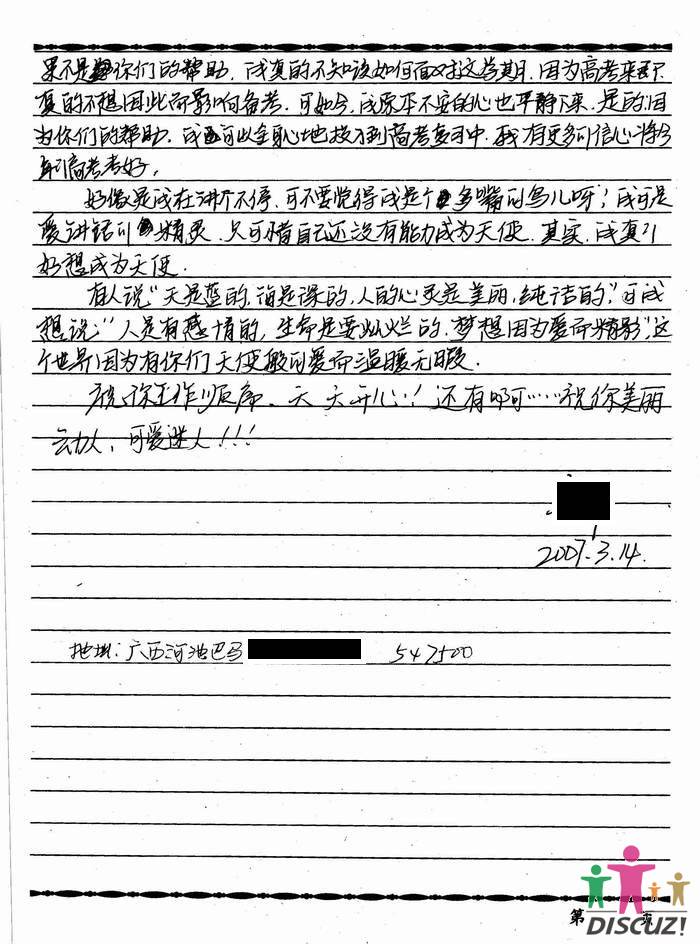 果不是你们的帮助，我真的不知该如何面对这为期，因为高考来
真的不想因此而影响备考，可如今，我原本不安的心也平静下来，是的因
为你们的帮助，我可以全身心地投入到高考复习中，我有更多的信心将今
年高考考好。
好像是我在讲个不停，可不要觉得我是个多嘴的鸟儿呀！我可是
爱讲话的精灵，只可惜自己还没有能力成为天使，其实，我真的
好想成为天使．
有人说“天是蓝的，海是深的，人的心灵是美丽，纯洁的”，可我
想说：“人是有感情的，生命是要灿烂的，梦想因为爱而精彩”，这
个世界因为有你们天使般的爱而温暖无暇．
祝你工作顺序、天天开心！还有啊……祝你美丽
动人，可爱迷人！！！
2007.3.14.
地址：广西河池巴马 547500
第 页
DISCUZ!